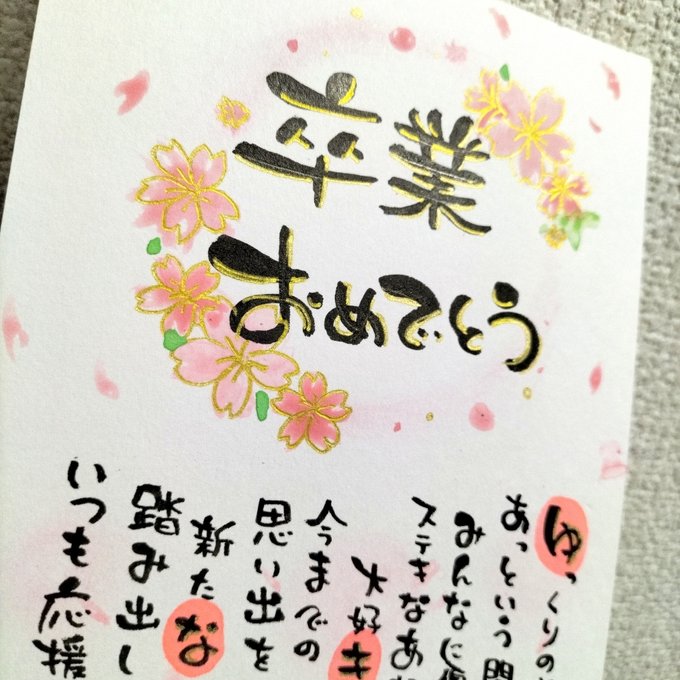 卒業
おめでとう
ゆっくりの
あっという間
みんなに
ステキなあ
大好き
今までの
思い出を
新たな
踏み出し
いつも応援